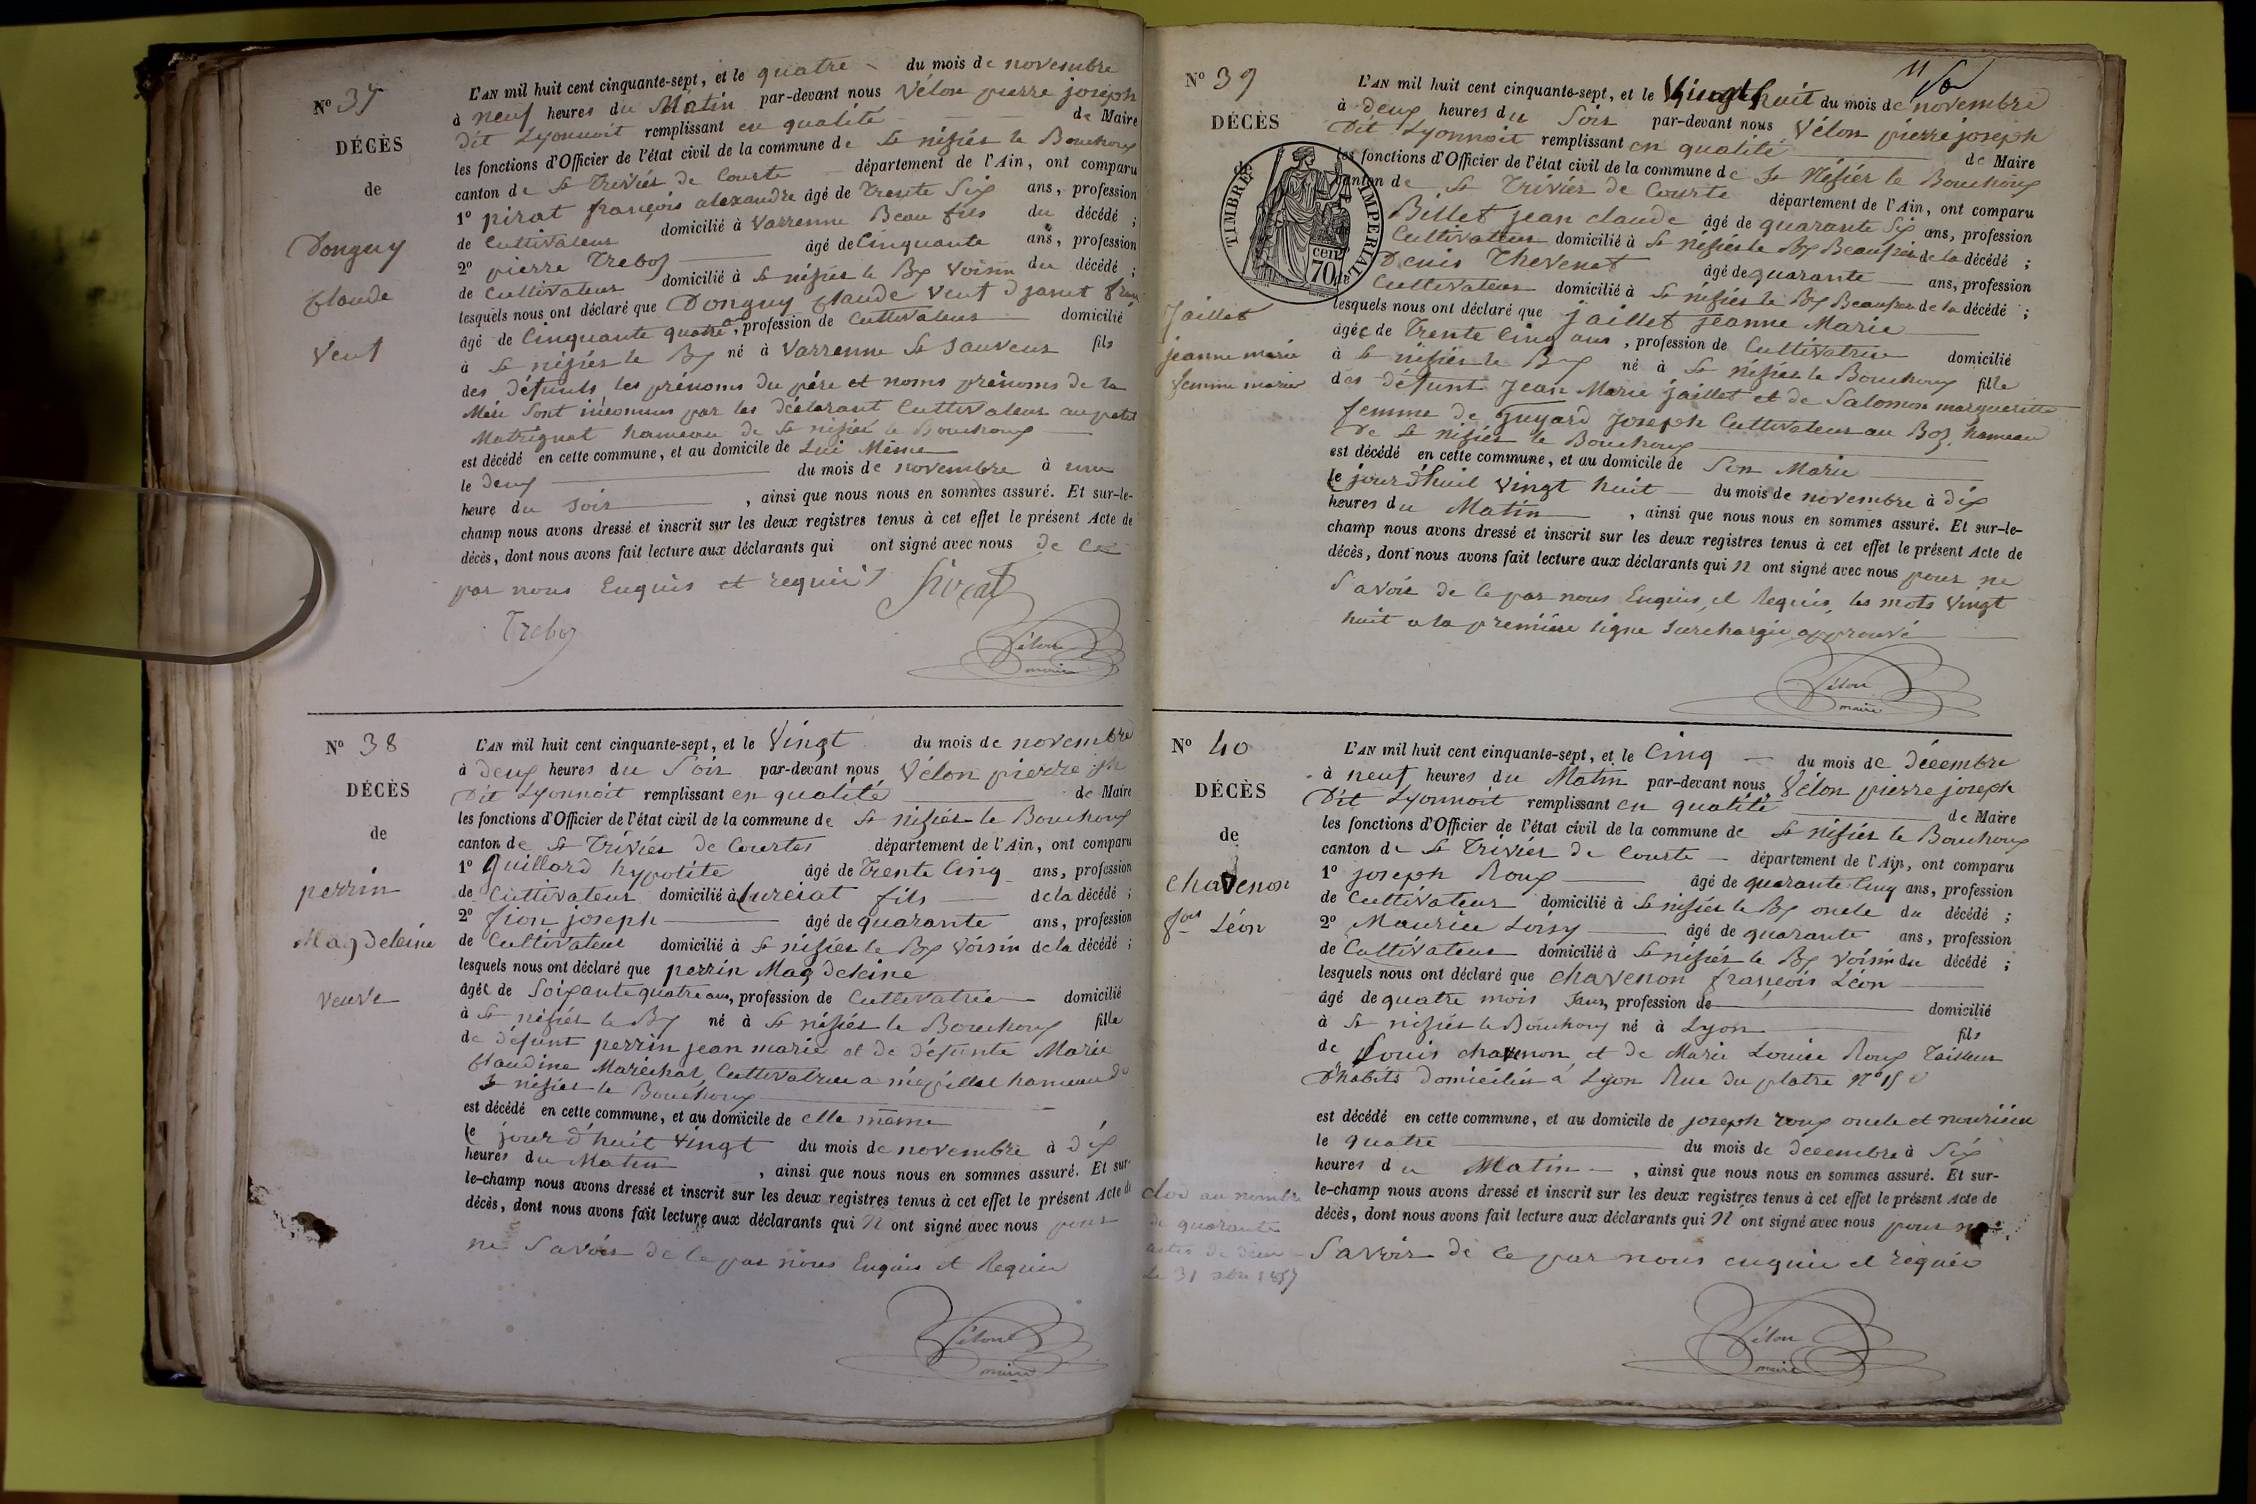 N° 37
DÉCÈS
de
Donguy
Claude
veuf
L'AN mil huit cent cinquante-sept, et le quatre du mois de novembre
à neuf heures du Matin par-devant nous Vélon pierre joseph
Dit Lyonnoit remplissant en qualité de Maire
les fonctions d'Officier de l'état civil de la commune de St nisiér le Bouchoux
canton de St Triviér de Courte département de l'Ain, ont comparu
1° pirat françois alexandre âgé de Trente Six ans, profession
de Cultivateur domicilié à Varrenne Beau fils du décédé ;
2° pierre Treboz âgé de Cinquante ans, profession
de Cultivateur domicilié à St nisier le Bx Voisin du décédé ;
lesquels nous ont déclaré que Donguy Claude veuf
âgé de Cinquante quatre ans, profession de Cultivateur domicilié
à St nisiér le Bx né à Varrenne St Sauveur fils
des défunts les prénoms du pére et noms prénoms de la
Mére sont inconnus par les déclarant Cultivateur au petit
Matrignat hameau de St nisier le Bouchoux
est décédé en cette commune, et au domicile de Lui Même
le deux du mois de novembre à une
heure du soir , ainsi que nous nous en sommes assuré. Et sur-le-
champ nous avons dressé et inscrit sur les deux registres tenus à cet effet le présent Acte de
décès, dont nous avons fait lecture aux déclarants qui ont signé avec nous de ce
par nous Enquis et requis
Treboz
Vélon
maire
N° 38
DÉCÈS
de
perrin
Magdeleine
veuve
L'AN mil huit cent cinquante-sept, et le Vingt du mois de novembre
à deux heures du Soir par-devant nous Vélon pierre jph
Dit Lyonnoit remplissant en qualité de Maire
les fonctions d'Officier de l'état civil de la commune de St nisiér le Bouchoux
canton de St Triviér de Courtes département de l'Ain, ont comparu
1° Guillard hypolite âgé de Trente Cinq ans, profession
de Cultivateur domicilié à Curciat fils de la décédé ;
2° fion joseph âgé de quarante ans, profession
de Cultivateur domicilié à St nisiér le Bx Voisin de la décédé ;
lesquels nous ont déclaré que perrin Magdeleine
âgée de Soixante quatre ans, profession de Cultivatrice domicilié
à St nisiér le Bx né à St nisiér le Bouchoux fille
de défunt perrin jean marie et de défunte Marie
Claudine Maréchal Cultivatrice a hameau de
St nisiér le Bouchoux
est décédé en cette commune, et au domicile de elle même
le jourd'huit vingt du mois de novembre à dix
heures du Matin , ainsi que nous nous en sommes assuré. Et sur-
le-champ nous avons dressé et inscrit sur les deux registres tenus à cet effet le présent Acte de
décès, dont nous avons fait lecture aux déclarants qui n' ont signé avec nous pour
ne Savoir de Ce par nous Enquis et Requis
Vélon
maire
N° 39
DÉCÈS
de
TIMBRE IMPERIAL
70 cen
Jaillet
jeanne marie
femme marier
L'AN mil huit cent cinquante-sept, et le Vingt huit du mois de novembre
à deux heures du Soir par-devant nous Vélon pierre joseph
Dit Lyonnoit remplissant en qualité de Maire
les fonctions d'Officier de l'état civil de la commune de St Nisiér le Bouchoux
canton de St Triviér de Courte département de l'Ain, ont comparu
Billet jean claude âgé de quarante Six ans, profession
Cultivateur domicilié à St nisiér le Bx Beaufrér de la décédé ;
Denis Thevenet âgé de quarante ans, profession
de Cultivateur domicilié à St nisiér le Bx Beaufrer de la décédé ;
lesquels nous ont déclaré que jaillet jeanne Marie
âgée de Trente Cinq ans , profession de Cultivatrice domicilié
à St nisiér le Bx né à St nisiér le Bouchoux fille
des défunt Jean Marie jaillet et de Salomon margueritte
femme de Guyard Joseph Cultivateur au Boz hameau
de St nisiér le Bouchoux
est décédé en cette commune, et au domicile de Son Marie
le jourd'huit vingt huit du mois de novembre à dix
heures du Matin , ainsi que nous nous en sommes assuré. Et sur-le-
champ nous avons dressé et inscrit sur les deux registres tenus à cet effet le présent Acte de
décès, dont nous avons fait lecture aux déclarants qui n ont signé avec nous pour ne
Savoir de Ce par nous Enquis et Requis, les mots Vingt
huit a la premiére ligne Surchargée approuvé
Vélon
maire
N° 40
DÉCÈS
de
chavenon
fois Léon
L'AN mil huit cent cinquante-sept, et le Cinq du mois de décembre
à neuf heures du Matin par-devant nous Vélon pierre joseph
Dit Lyonnoit remplissant en qualité de Maire
les fonctions d'Officier de l'état civil de la commune de St nisiér le Bouchoux
canton de St Triviér de Courte département de l'Ain, ont comparu
1° joseph Roux âgé de quarante Cinq ans, profession
de Cultivateur domicilié à St nisiér le Bx oncle du décédé ;
2° Maurice Loisy âgé de quarante ans, profession
de Cultivateur domicilié à St nisiér le Bx Voisin du décédé ;
lesquels nous ont déclaré que chavenon françois Léon
âgé de quatre mois ans, profession de domicilié
à St nisiér le Bouchoux né à Lyon fils
de Louis chavenon et de Marie Louise Roux Tailleur
D'habits domiciliés à Lyon Rue du platre N° 15
est décédé en cette commune, et au domicile de joseph roux oncle et
le quatre du mois de décembre à Six
heures du Matin , ainsi que nous nous en sommes assuré. Et sur-
le-champ nous avons dressé et inscrit sur les deux registres tenus à cet effet le présent Acte de
décès, dont nous avons fait lecture aux déclarants qui N' ont signé avec nous pour ne
Savoir de ce par nous enquis et requis
Vélon
maire
Clos au nombre
de quarante
actes de
Le 31 1857